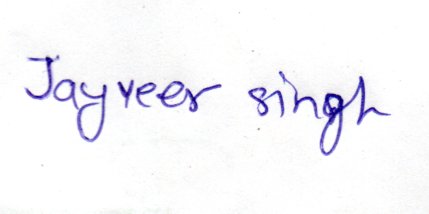 Jayveer singh